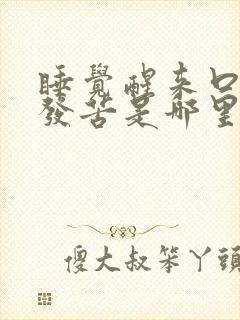 睡覺醒來口
發苦是哪里
傻大叔笨丫頭